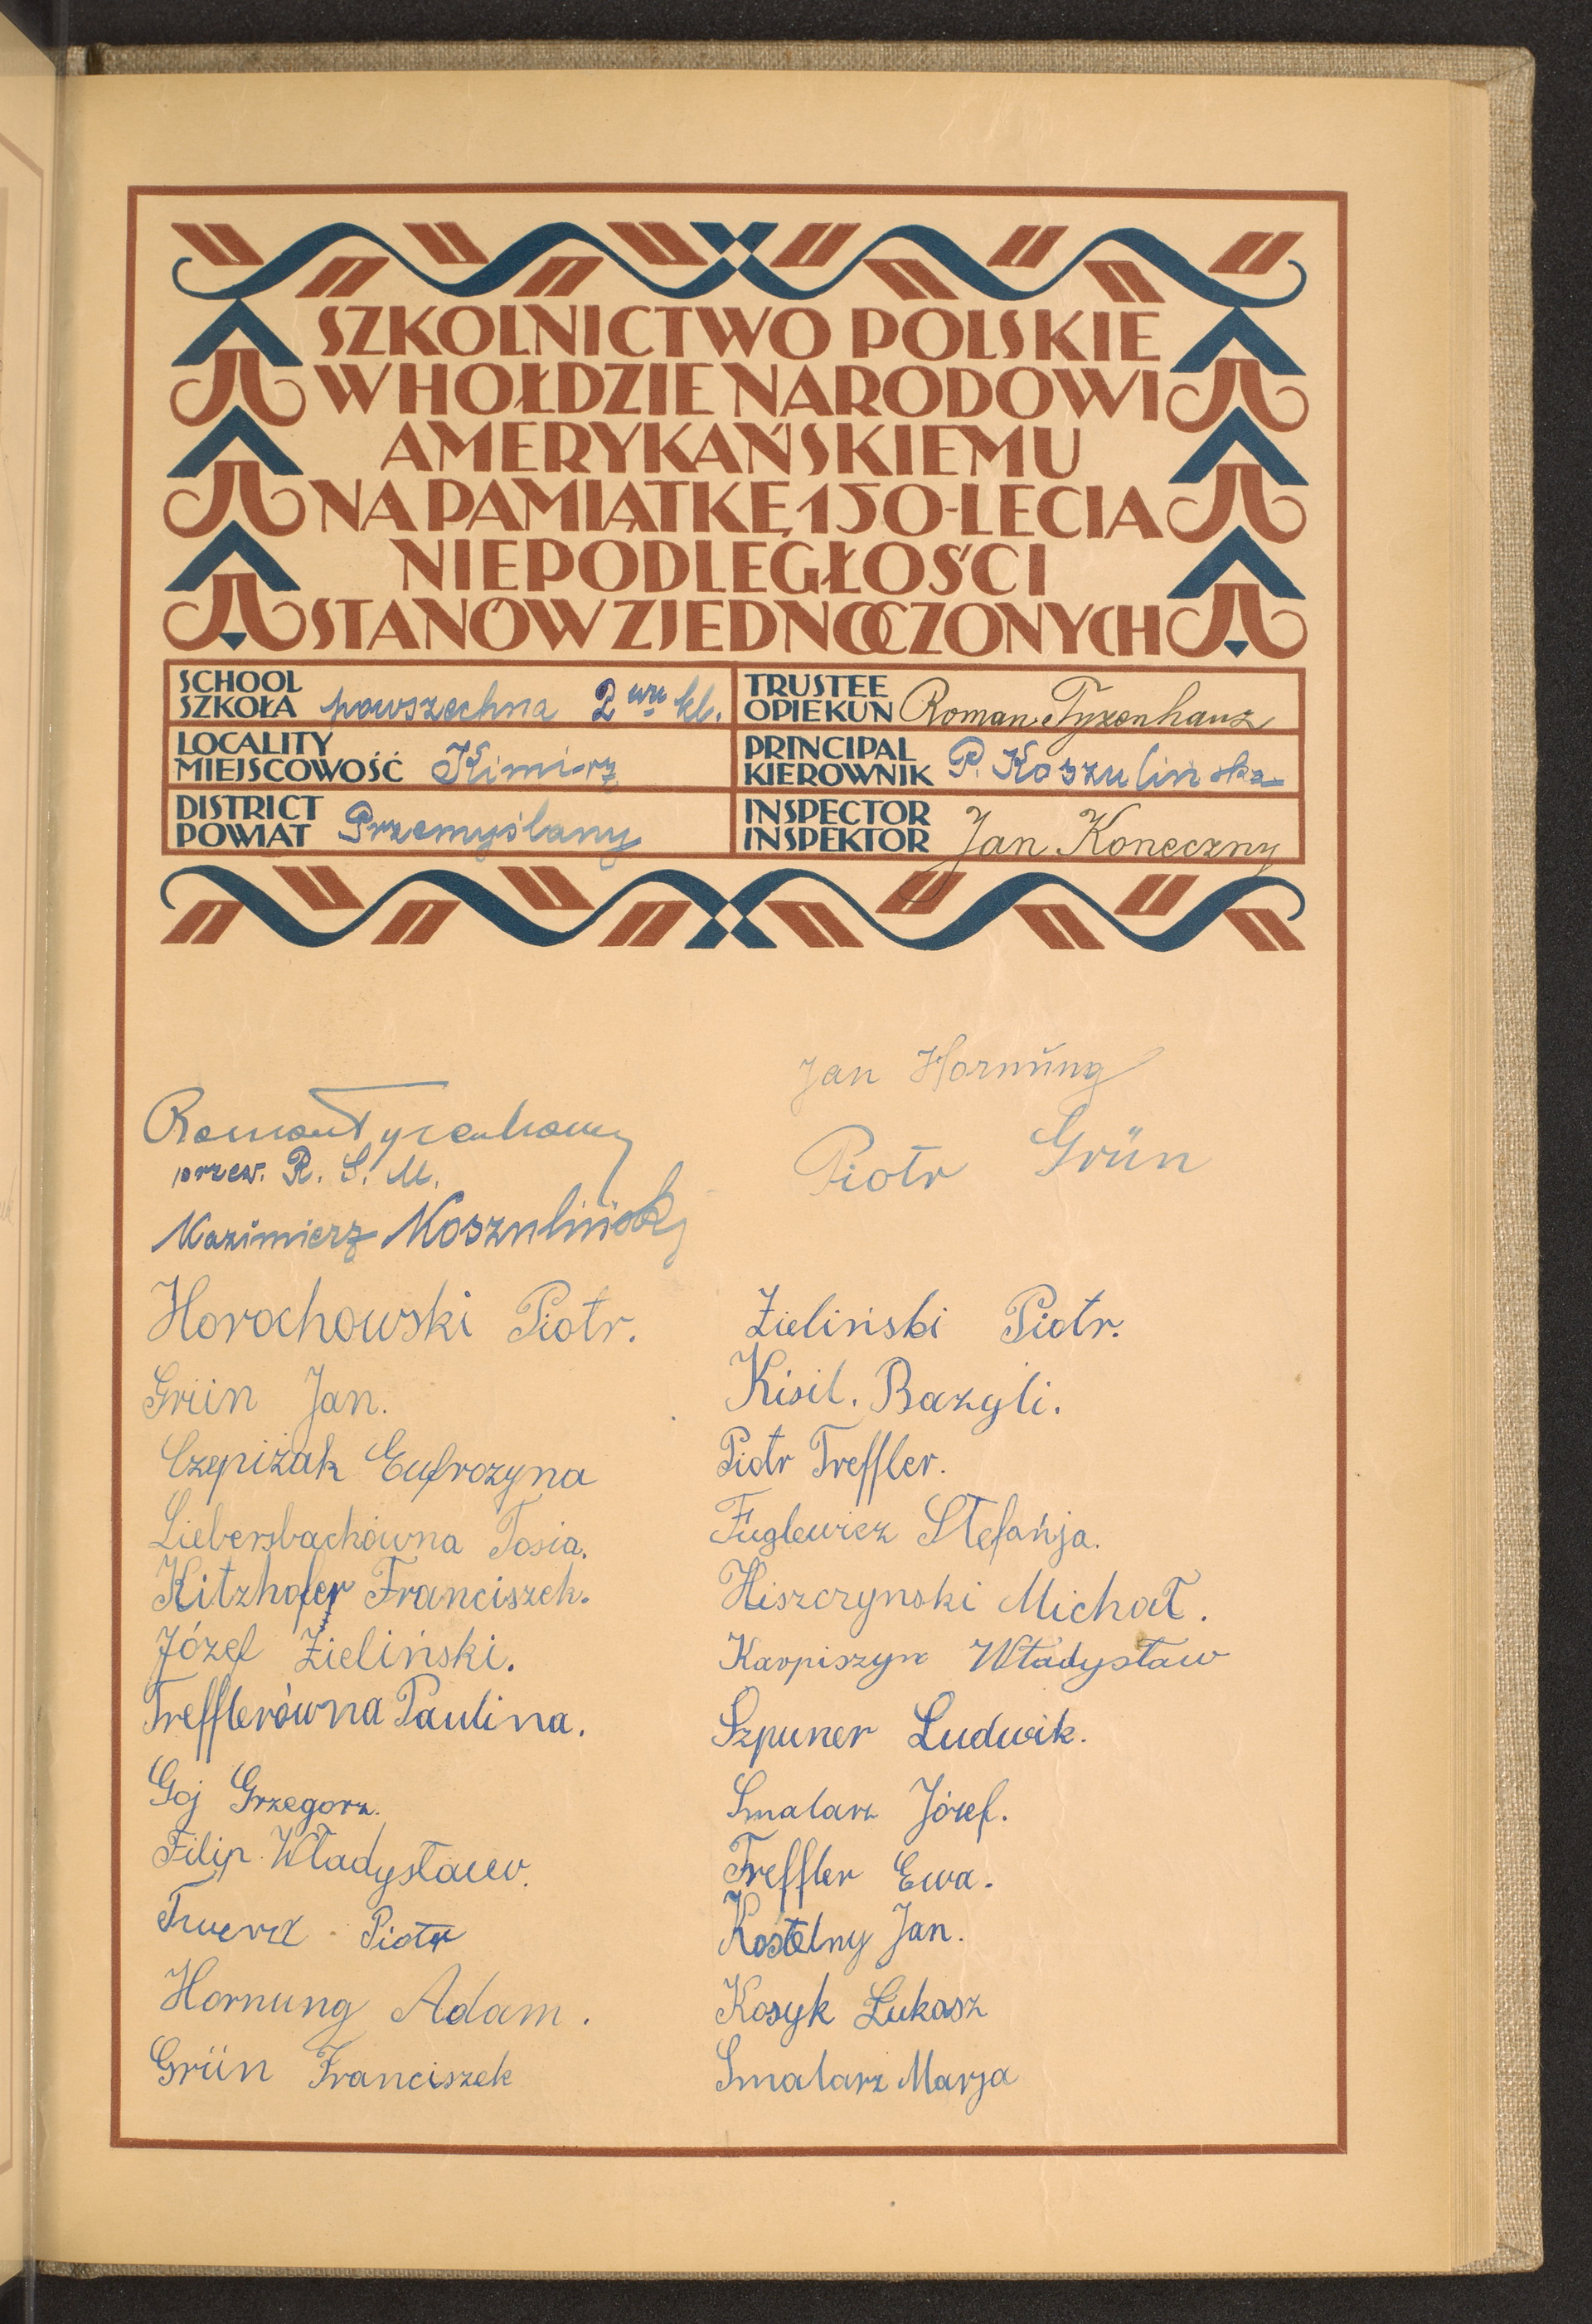 SZKOLNICTWO POLSKIE
W HOŁDZIE NARODOWI
AMERYKAŃSKIEMU
NA PAMIĄTKĘ 150-LECIA
NIEPODLEGŁOŚCI
STANÓW ZJEDNOCZONYCH
SCHOOL
SZKOŁA powszechna 2 wu kl.
TRUSTEE
OPIEKUN Roman Tyzenhauz
LOCALITY
MIEJSCOWOŚĆ Kimirz
PRINCIPAL
KIEROWNIK P. Koszulińska
DISTRICT
POWIAT Przemyślany
INSPECTOR
INSPEKTOR Jan Koneczny
Roman Tyzenhauz
przew. R. S. M.
Kazimierz Koszuliński
Jan Hornŭng
Piotr Grün
Horochowski Piotr.
Grün Jan.
Czepiżak Eufrozyna
Liebersbachówna Tosia.
Kitzhofer Franciszek.
Józef Zieliński.
Trefflerówna Paulina.
Goj Grzegorz.
Filip Władysław.
Piotr
Hornung Adam.
Grün Franciszek
Zieliński Piotr.
Kisil. Bazyli.
Piotr Treffler.
Fuglewicz Stefańja.
Hiszczynski Michał.
Karpiszyn Władysław
Szpuner Ludwik.
Smalarz Józef.
Treffler Ewa.
Kostelny Jan.
Kosyk Łukasz
Smalarz Marja